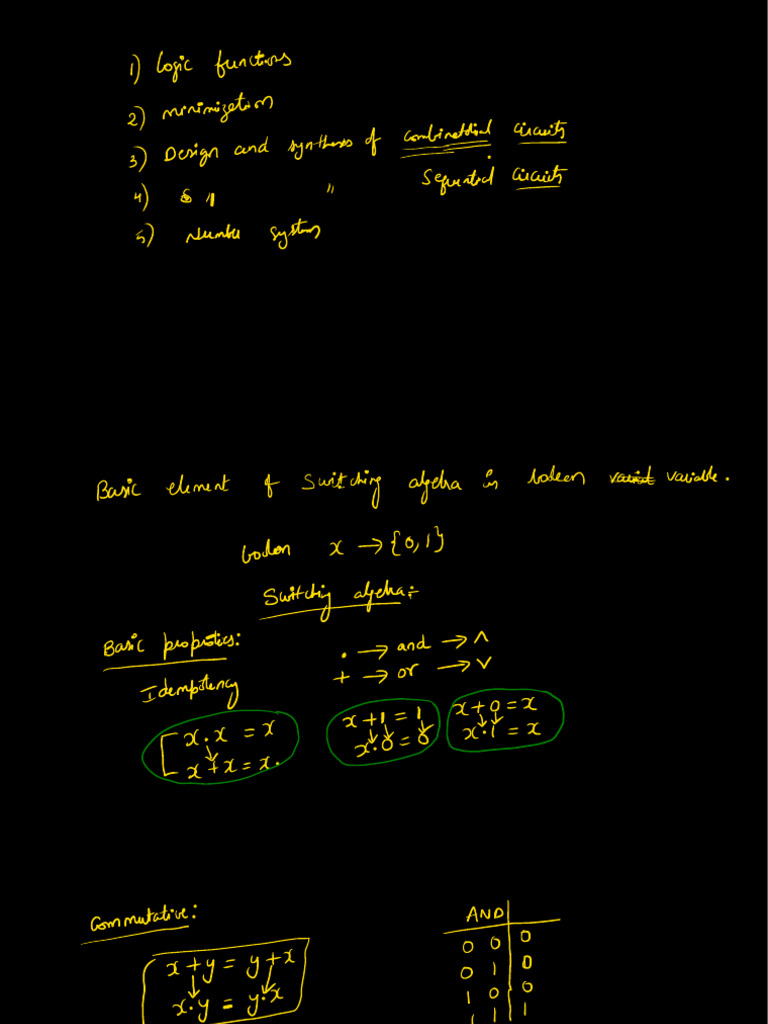 1) Logic functions
2) minimization
3) Design and synthesis of combinational circuits
4) " " Sequential circuits
5) Number system
Basic element of Switching algebra is boolean variable.
boolean x → {0,1}
Switching algebra:-
Basic properties:
. → and → ∧
+ → or → ∨
Idempotency
x . x = x
x + x = x.
x + 1 = 1
x . 0 = 0
x + 0 = x
x . 1 = x
Commutative:
x + y = y + x
x . y = y . x
AND
0 0 0
0 1 0
1 0 0
1 1 1